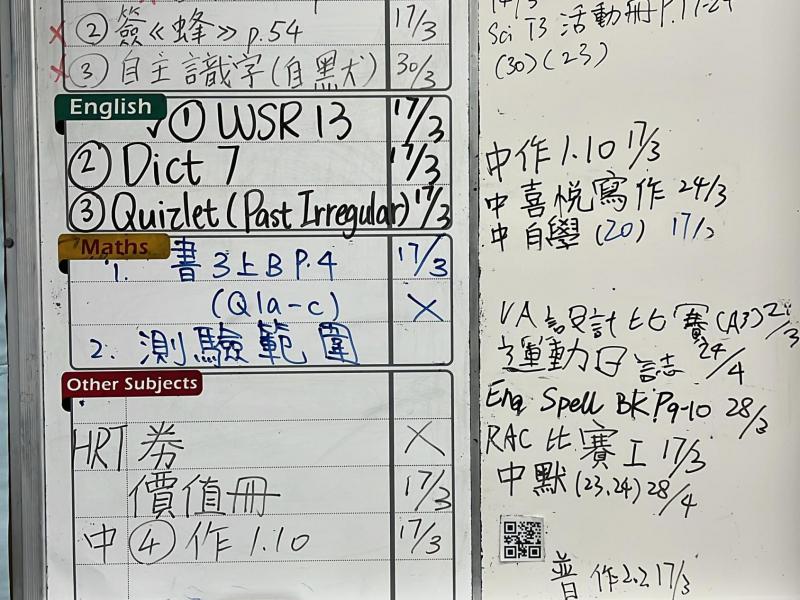 ② 簽《蜂》p.54 17/3
③ 自主識字(自黑犬) 30/3
English
✓① WSR 13 17/3
② Dict 7 17/3
③ Quizlet (Past Irregular) 17/3
Maths
1. 書3上B P.4 17/3
(Q1a-c) ×
2. 測驗範圍
Other Subjects
HRT 券 ×
價值冊 17/3
中④作 1.10 17/3
Sci T3 活動冊 P.17-24
(30)(23)
中作 1.10 17/3
中喜悅寫作 24/3
中自學 (20) 17/
VA 設計比賽(A3)
運動日誌 24/4
Eng Spell BK P9-10 28/3
RAC 比賽工 17/3
中默(23,24) 28/4
普作2.2 17/3